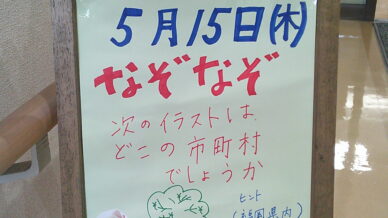 5月15日(木)
なぞなぞ
次のイラストは、
どこの市町村
でしょうか
ヒント
国県内)